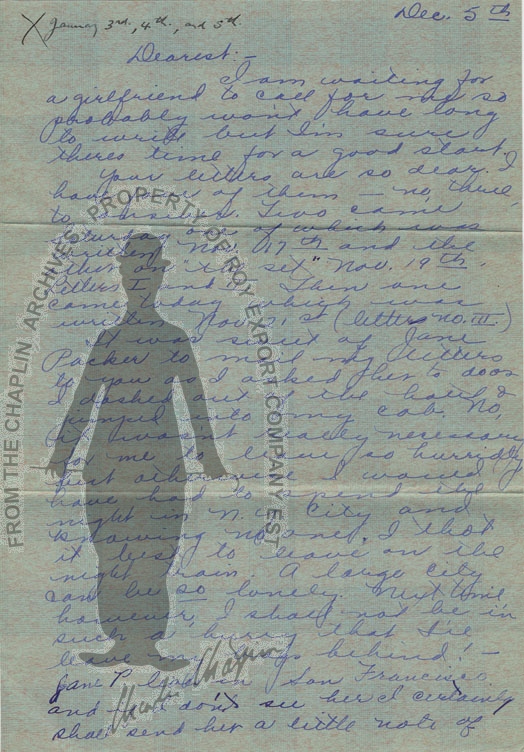 X January 3rd, 4th, and 5th.
Dec. 5th
Dearest:-
I am waiting for
a girlfriend to call for me so
probably won't have long
to write but I'm sure
theres time for a good start.
Your letters are so dear. I
have of them - no, three,
to answer. Two came
Saturday one of which was
written Nov. 17th and the
other on "the set" Nov. 19th.
Letters I and II. Then one
came today which was
written Nov. 21st (letter no. III.)
It was sweet of Jane
Packer to mail my letters
to you as I asked her to
I dashed out of the hotel &
jumped into my cab. No,
it wasn't really necessary
for me to leave so hurriedly
but otherwise I would
have had to spend the
night in N.Y. City and
knowing no one, I thot
it best to leave on the
night train. A large city
can be so lonely. Next time
however, I shall not be in
such a hurry that I'll
leave my behind! -
Jane P. in San Francisco
and don't see her I certainly
shall send her a little note of
FROM THE CHAPLIN ARCHIVES, PROPERTY OF ROY EXPORT COMPANY EST
Charlie Chaplin